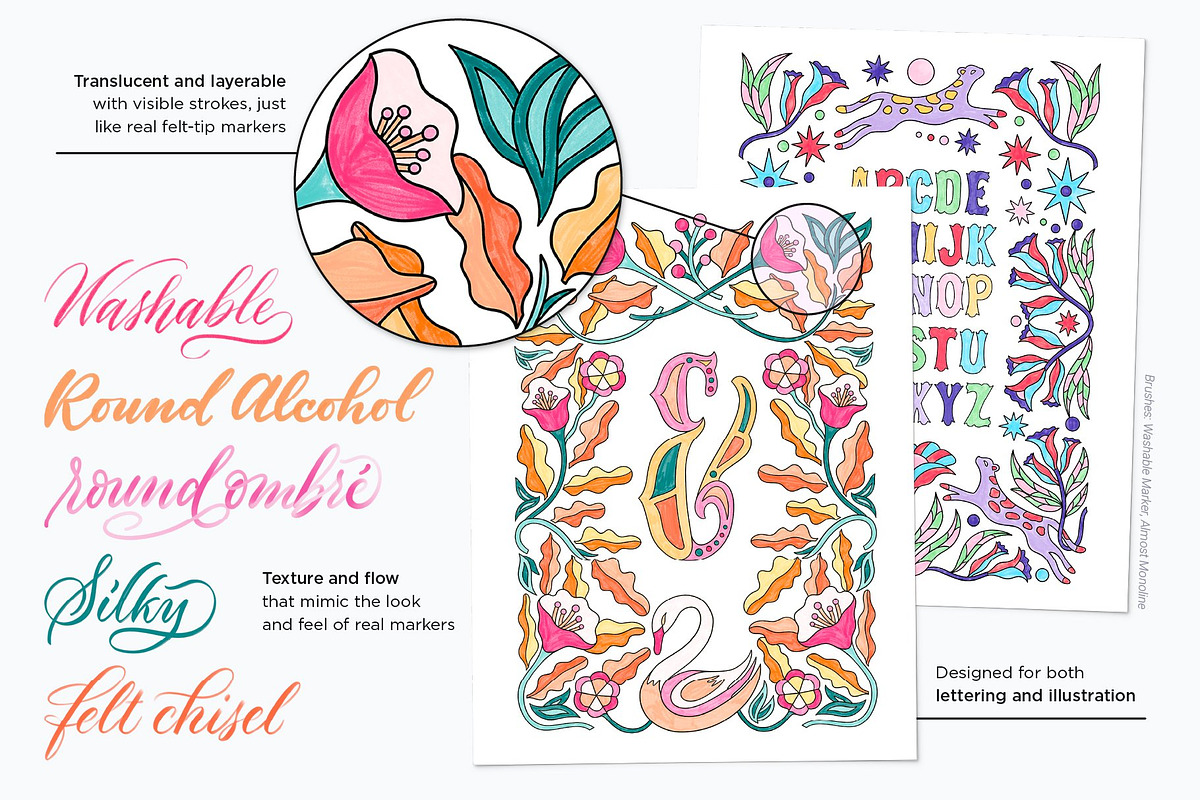 Translucent and layerable
with visible strokes, just
like real felt-tip markers
Washable
Round Alcohol
round ombré
Silky
felt chisel
Texture and flow
that mimic the look
and feel of real markers
ABCDE
IJK
NOP
STU
XYZ
Brushes: Washable Marker, Almost Monoline
Designed for both
lettering and illustration